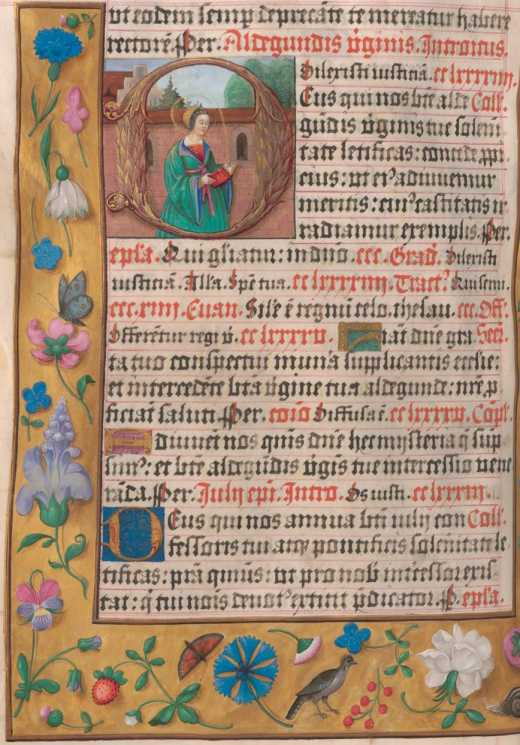 ut eodem semp deprecāte te mereatur habere
rectorē. Per. Aldegundis v̄ginis. Introitus.
Dilexisti iusticiā. cclxxxxiiii.
Deus qui nos bt̄e alde Coll.
gūdis v̄ginis tue solēni
tate letificas: concede ppi
cius: ut ei᾽ adiuuemur
meritis: cui᾽ castitatis ir
radiamur exemplis. Per.
epl̄a. Qui gl̄iatur: in dn̄o. ccc. Grad. Dilexisti
iusticiā. All̄a. Spēm tua. cclxxxxiiii. Tract᾽. Qui semi.
ccc.xiiii. Euan. Sil̄e ē regnū celo. thesau. ccc. Off.
Offerētur regi v̄. cclxxxxv. Grata dn̄e gra Secr̄.
ta tuo conspectui munā supplicantis eccl̄ie:
et intercedēte bt̄a v̄gine tua aldegunde: nr̄e p̄
ficiāt saluti. Per. cōio Diffusa ē. cclxxxxv. Cōpl.
Adiuuēt nos quis dn̄e hec mysteria q̄ sup
sim᾽: et bt̄e aldegūdis v̄gīs tue intercessio vene
rāda. Per. Julij epī. Intro. Os iusti. cclxxxiii.
Deus qui nos annua bt̄i iulij con Coll.
fessoris tui atq̄ pontificis solēnitate le
tificas: pr̄a q̄mus: ut pro nob̄ intercessor exis
tat: q̄ tui nōis deuot᾽ extitit p̄dicator. P. epl̄a.